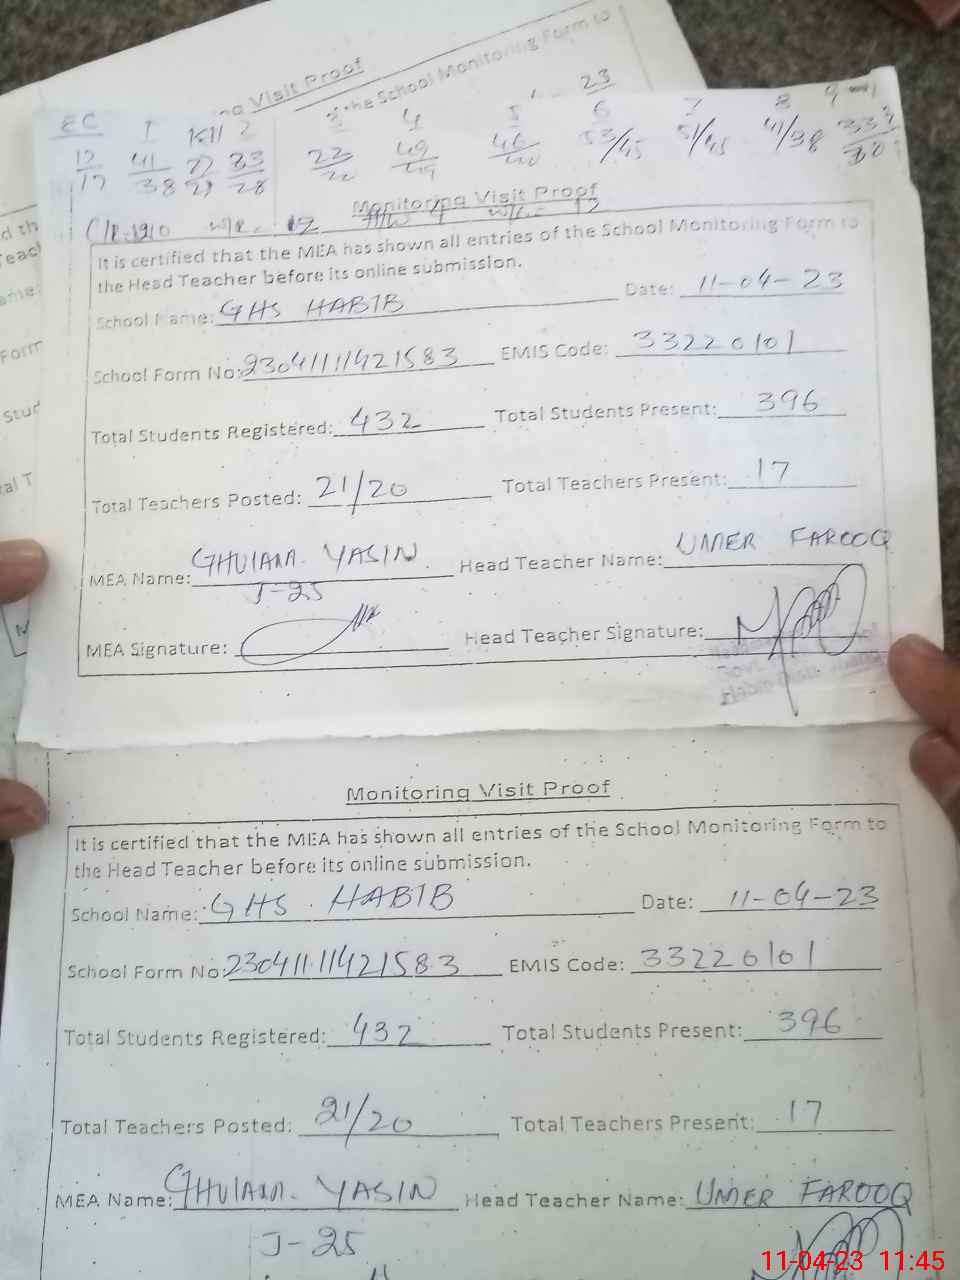 ng Visit Proof
the School Monitoring Form to
23
EC 1 2 4 5 6 7 8
41 49 46 53/45 51/45 41/38
38
Monitoring Visit Proof
It is certified that the MEA has shown all entries of the School Monitoring Form to
the Head Teacher before its online submission.
School Name: GHS HABIB Date: 11-04-23
School Form No: 23041111421583 EMIS Code: 33220101
Total Students Registered: 432 Total Students Present: 396
Total Teachers Posted: 21/20 Total Teachers Present: 17
MEA Name: GHULAM YASIN Head Teacher Name: UMER FAROOQ
J-25
MEA Signature: Head Teacher Signature:
Monitoring Visit Proof
It is certified that the MEA has shown all entries of the School Monitoring Form to
the Head Teacher before its online submission.
School Name: GHS HABIB Date: 11-04-23
School Form No: 23041111421583 EMIS Code: 33220101
Total Students Registered: 432 Total Students Present: 396
Total Teachers Posted: 21/20 Total Teachers Present: 17
MEA Name: GHULAM YASIN Head Teacher Name: UMER FAROOQ
J-25
11-04-23 11:45